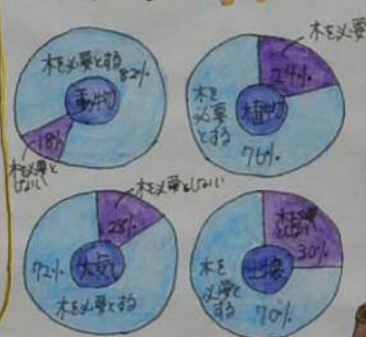 木を必要とする
82%
動物
18%
木を必要と
しない
木を必要
24%
植物
木を
必要
とする
76%
木を必要としない
28%
大気
72%
木を必要とする
木を必要
としない
30%
土壌
木を
必要と
する
70%